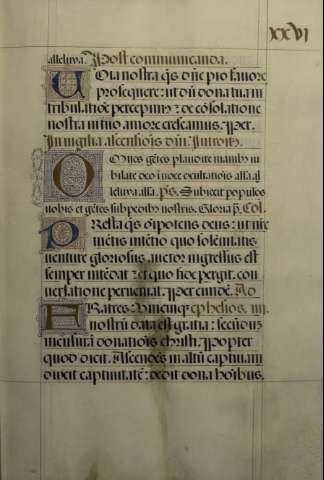 XXVI
alleluya. Post communicanda.
Vota nostra q̄s dñe pio fauore
prosequere: ut dū dona tua in
tribulatiōe percepimꝰ ⁊ de cōsolatione
nostra in tuo amore crescamus. Per.
In uigilia ascensiōis dñi. Introitꝰ.
Omnes gētes plaudite manibꝰ iu
bilate deo in uoce exultatiōis all'a al
leluya all'a. ps. Subiecit populos
nobis et gētes sub pedibꝰ nostris. Gloria p̄. Col.
Presta q̄s oīpotens deus: ut nr̄e
mētis intētio quo solēnitatis
uenture gloriosus auctor ingressus est
semper intēdat ⁊ et quo fide pergit. con
uersatione perueniat. Per eundē. Ad
Fratres: Unicuiqꝫ ephesios. iiij.
nostrū data est gratia: secūdū
mensurā donatiōis christi. Propter
quod dicit. Ascendēs in altū captiuam
duxit captiuitatē: dedit dona hoībus.